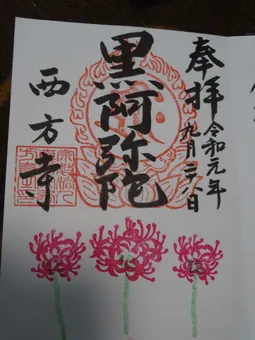 奉拝
令和元年
九月二八日
黒阿弥陀
西方寺